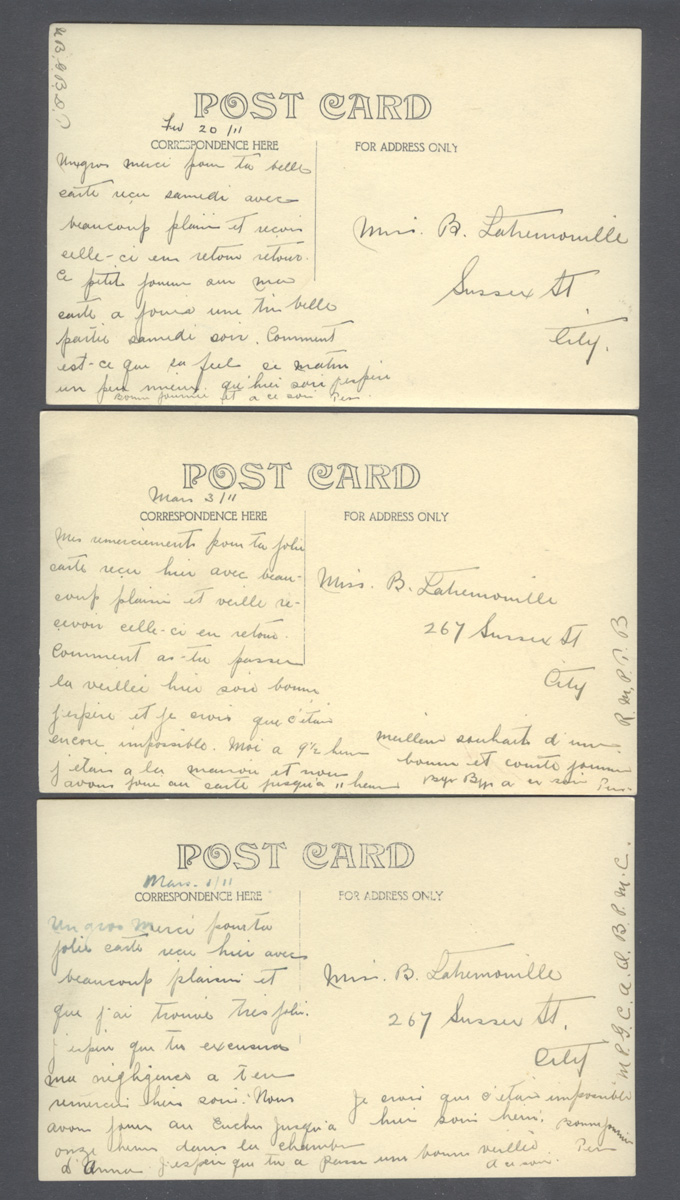 POST CARD
20/11
CORRESPONDENCE HERE
FOR ADDRESS ONLY
Un gros merci pour ta belle
carte reçu samedi avec
beaucoup plaisir et reçois
celle-ci en retour retour.
Ce petit joueur sur ma
carte a joués une très belle
partie samedi soir. Comment
est-ce que sa feel ce matin
un peu mieux qu'hier soir j'espère
bonne journée et a ce soir
Miss. B. Latremouille
Sussex St
City.
POST CARD
Mars 3/11
CORRESPONDENCE HERE
FOR ADDRESS ONLY
Mes remerciements pour ta jolie
carte reçu hier avec beau-
coup plaisir et veille re-
cevoir celle-ci en retour.
Comment as-tu passer
la veillée hier soir bonne
j'espère et je crois que c'étais
encore impossible. Moi a 9½ heure
j'étais a la maison et nous
avons joue au carte jusqu'a 11 heure
Miss. B. Latremouille
267 Sussex St
City
meilleur souhaits d'une
bonne et courte journee
Bye Bye a ce soir
R. M. P. T. B
POST CARD
Mars. 1/11
CORRESPONDENCE HERE
FOR ADDRESS ONLY
Un gros Merci pour ta
jolie carte reçu hier avec
beaucoup plaisir et
que j'ai trouvée très joli.
j'espère que tu excuseras
ma négligence a t'en
remercier hier soir. Nous
avons jouer au Euchre jusqu'a
onze heure dans la chambre
d'Anna. j'espère que tu a passe une bonne veillée
Miss. B. Latremouille
267 Sussex St.
City
Je crois que c'étais impossible
hier soir hein. Bonne journée
a ce soir.
M. P. G. C. a. d. B. P. M. C.